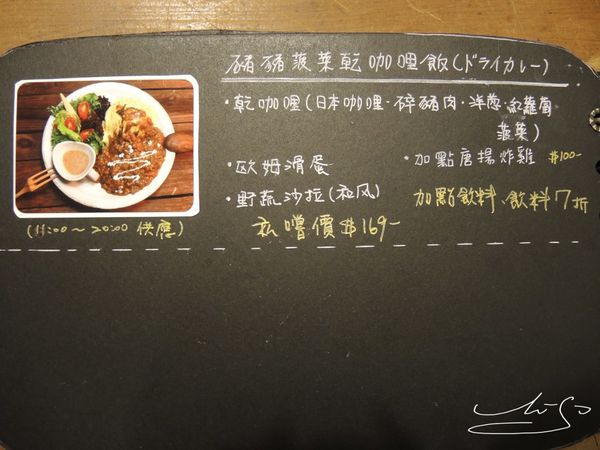 豬豬菠菜乾咖哩飯(ドライカレー)
・乾咖哩(日本咖哩・碎豬肉・洋蔥・紅蘿蔔
菠菜)
・歐姆滑蛋
・加點唐揚炸雞 $100-
・野蔬沙拉(和風)
加點飲料、飲料7折
嚐價$169-
(11:00~20:00 供應)